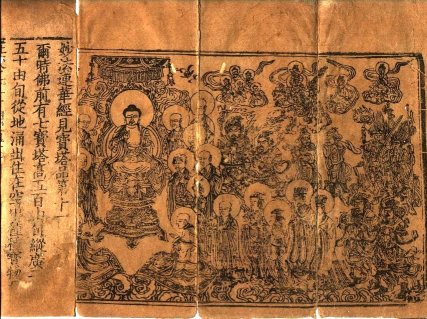 妙法蓮華經見寶塔品第十一
爾時佛前有七寶塔高五百由旬縱廣二
五十由旬從地涌出住在空中種種寶物